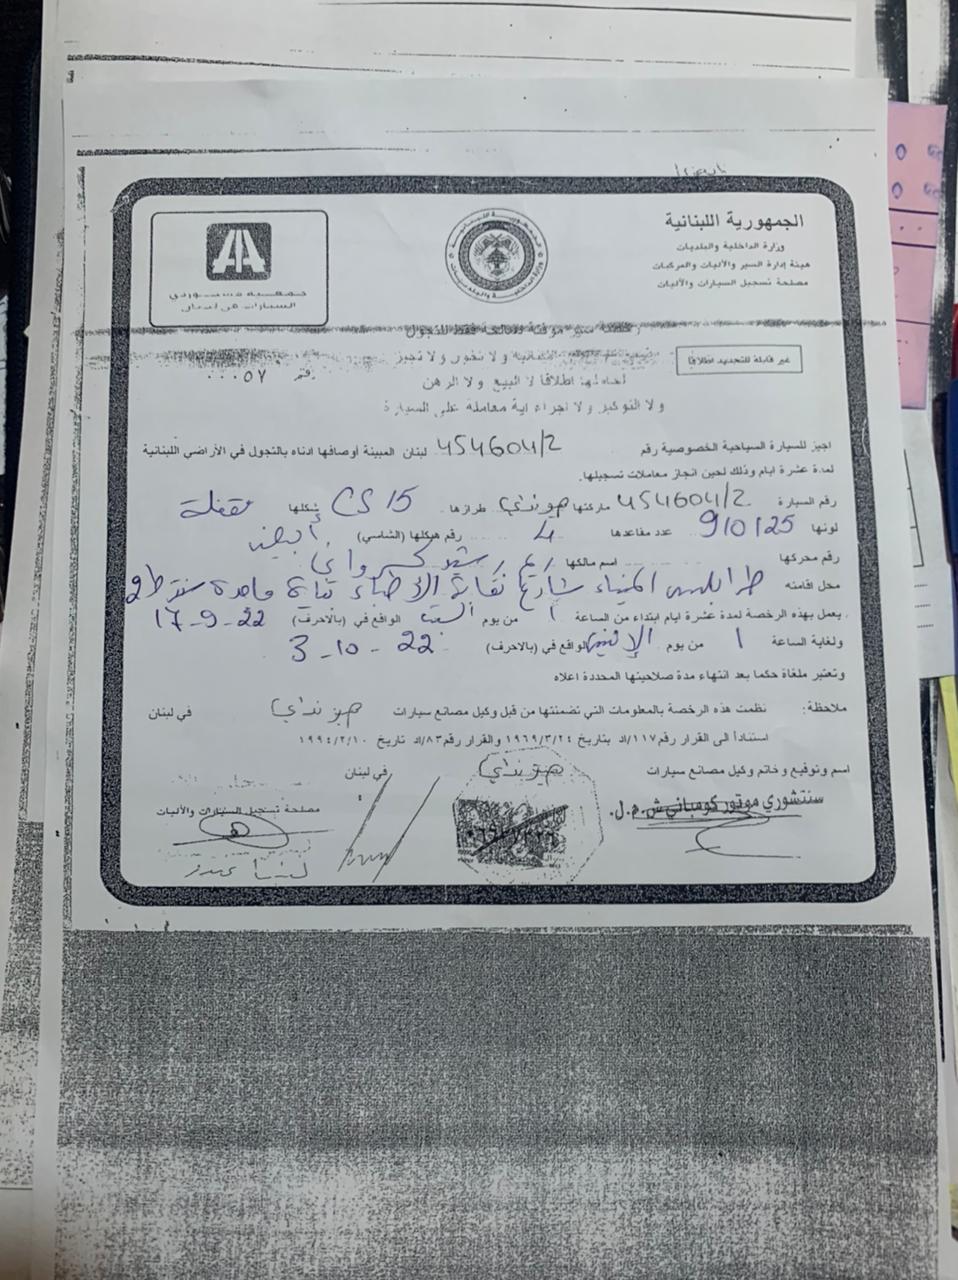 الجمهورية اللبنانية
وزارة الداخلية والبلديات
هيئة إدارة السير والآليات والمركبات
مصلحة تسجيل السيارات والآليات
جمعية مستوردي
السيارات في لبنان
رخصة سير موقتة صالحة فقط للتجول
ولا تخول ولا تجيز
غير قابلة للتجديد اطلاقا
لحاملها اطلاقا لا البيع ولا الرهن
رقم ٠٠٠٥٧
ولا التوكيل ولا اجراء اية معاملة على السيارة
اجيز للسيارة السياحية الخصوصية رقم 454604/2 لبنان المبينة أوصافها ادناه بالتجول في الأراضي اللبنانية
لمدة عشرة ايام وذلك لحين انجاز معاملات تسجيلها.
رقم السيارة 454604/2 ماركتها هونداي طرازها CS 15 شكلها مقفلة
لونها 910125 عدد مقاعدها 4 رقم هيكلها (الشاسي) أبيض
رقم محركها اسم مالكها
محل اقامته طرابلس الميناء شارع نقابة الأطباء بناية سنتر ط2
يعمل بهذه الرخصة لمدة عشرة ايام ابتداء من الساعة 1 من يوم السبت الواقع في (بالاحرف) 17-9-22
ولغاية الساعة 1 من يوم الإثنين الواقع في (بالاحرف) 3-10-22
وتعتبر ملغاة حكما بعد انتهاء مدة صلاحيتها المحددة اعلاه
ملاحظة: نظمت هذه الرخصة بالمعلومات التي تضمنتها من قبل وكيل مصانع سيارات هونداي في لبنان
استنادأ الى القرار رقم ١١٧/اد بتاريخ ١٩٦٩/٣/٢٤ والقرار رقم ٨٣/اد تاريخ ١٩٩٤/٢/١٠
اسم وتوقيع وخاتم وكيل مصانع سيارات هونداي في لبنان
سنتشوري موتور كومباني ش.م.ل.
مصلحة تسجيل السيارات والآليات